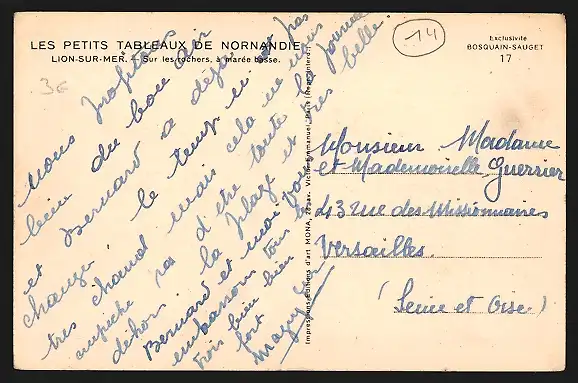 LES PETITS TABLEAUX DE NORMANDIE
LION-SUR-MER. — Sur les rochers, à marée basse.
Exclusivité
BOSQUAIN-SAUGET
17
14
3€
Nous profitons
bien du bon air
et Bernard a déjà
changé, le temps n'est pas
très chaud mais cela ne nous
empêche pas d'être toute la journée
dehors la plage est très belle.
Bernard et moi vous
embrassons tous les
trois bien bien
fort
Impressions
Monsieur Madame
et Mademoiselle Guerrier
43 rue des Missionnaires
Versailles.
(Seine et Oise)